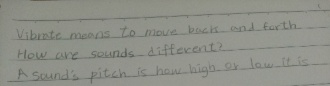 Vibrate means to move back and forth
How are sounds different?
A sound's pitch is how high or low it is